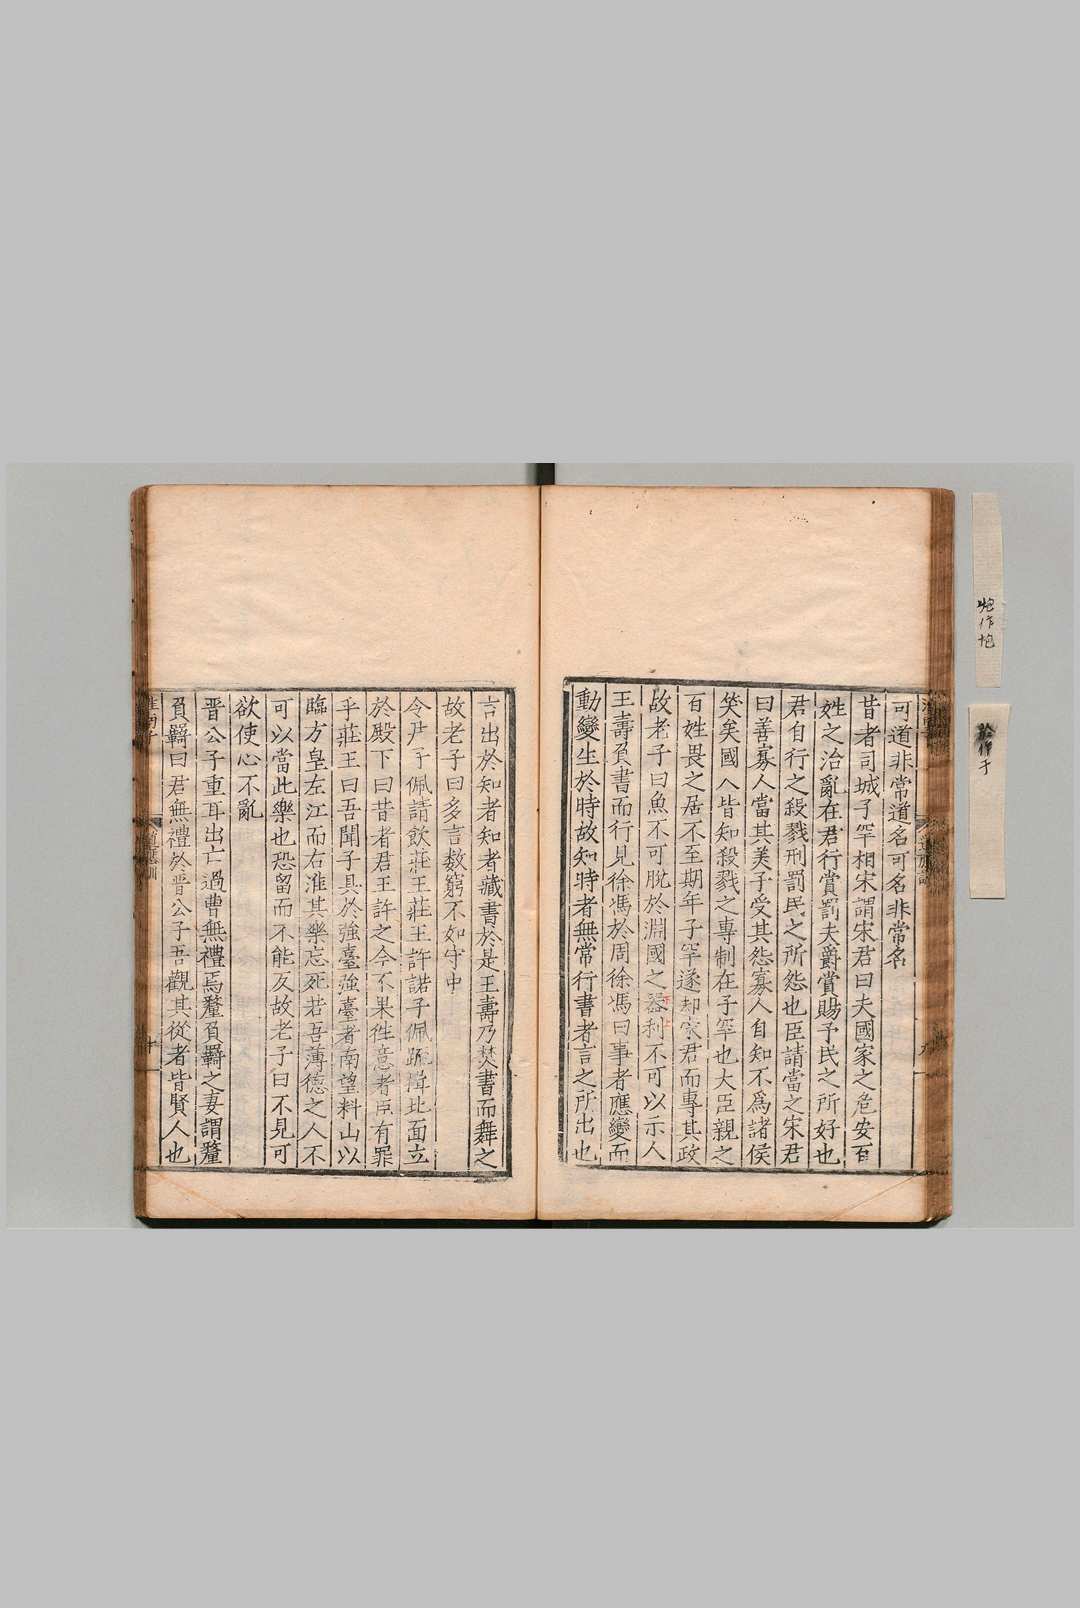 可道非常道名可名非常名
昔者司城子罕相宋謂宋君曰夫國家之危安百
姓之治亂在君行賞罰夫爵賞賜予民之所好也
君自行之殺戮刑罰民之所怨也臣請當之宋君
曰善寡人當其美子受其怨寡人自知不爲諸侯
笑矣國人皆知殺戮之專制在子罕也大臣親之
百姓畏之居不至期年子罕遂却宋君而專其政
故老子曰魚不可脫於淵國之器利不可以示人
下
上
王壽負書而行見徐馮於周徐馮曰事者應變而
動變生於時故知時者無常行書者言之所出也
言出於知者知者藏書於是王壽乃焚書而舞之
故老子曰多言數窮不如守中
令尹子佩請飲莊王莊王許諾子佩疏揖北面立
於殿下曰昔者君王許之今不果往意者臣有罪
乎莊王曰吾聞子具於強臺強臺者南望料山以
臨方皇左江而右淮其樂忘死若吾薄德之人不
可以當此樂也恐留而不能反故老子曰不見可
欲使心不亂
晉公子重耳出亡過曹無禮焉釐負羈之妻謂釐
負羈曰君無禮於晉公子吾觀其從者皆賢人也
淮南子
道應訓
十
炮作炮
於作于